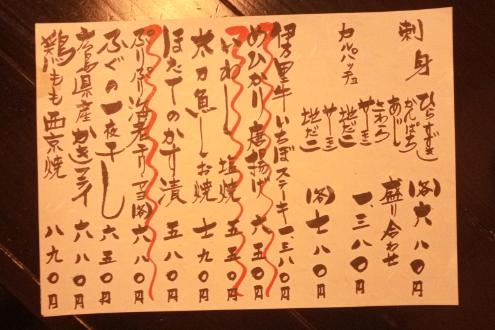 刺身
ひらすずき
かんぱち
あじ
さわら
やーぎ
地だこ
(各)六八〇円
盛り合わせ
一、三八〇円
カルパッチョ
やーぎ
地だこ
(各)七八〇円
伊万里牛いちぼステーキ 一、三八〇円
めひかり唐揚げ 六五〇円
いわし塩焼 五五〇円
太刀魚しお焼 七九〇円
ほたてのかす漬 五八〇円
ぷりぷり海老チリマヨ 六八〇円
ふぐの一夜干し 六五〇円
広島県産かきフライ 八八〇円
鶏もも西京焼 八九〇円